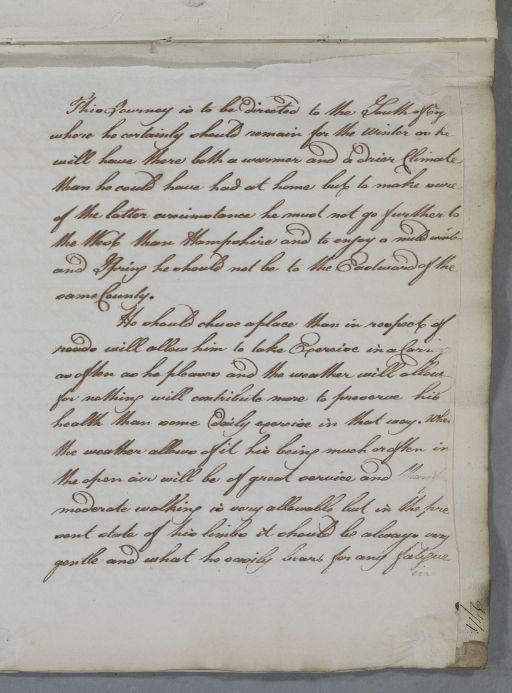 This Journey is to be directed to the South of
where he certainly should remain for the Winter as he
will have there both a warmer and a drier Climate
than he could have had at home but to make sure
of the latter circumstance he must not go further to
the West than Hampshire and to enjoy a mild
and Spring he should not be to the Eastward of the
same County.
He should chuse a place than in respect of
roads will allow him to take Exercise in a
as often as he pleases and the weather will allow
for nothing will contribute more to preserve his
health than some daily exercise in that way. When
the weather allows of it his being much & often in
the open air will be of great service and
moderate walking is very allowable but in the pre
sent state of his limbs it should be always very
gentle and what he easily bears for any fatigue
in